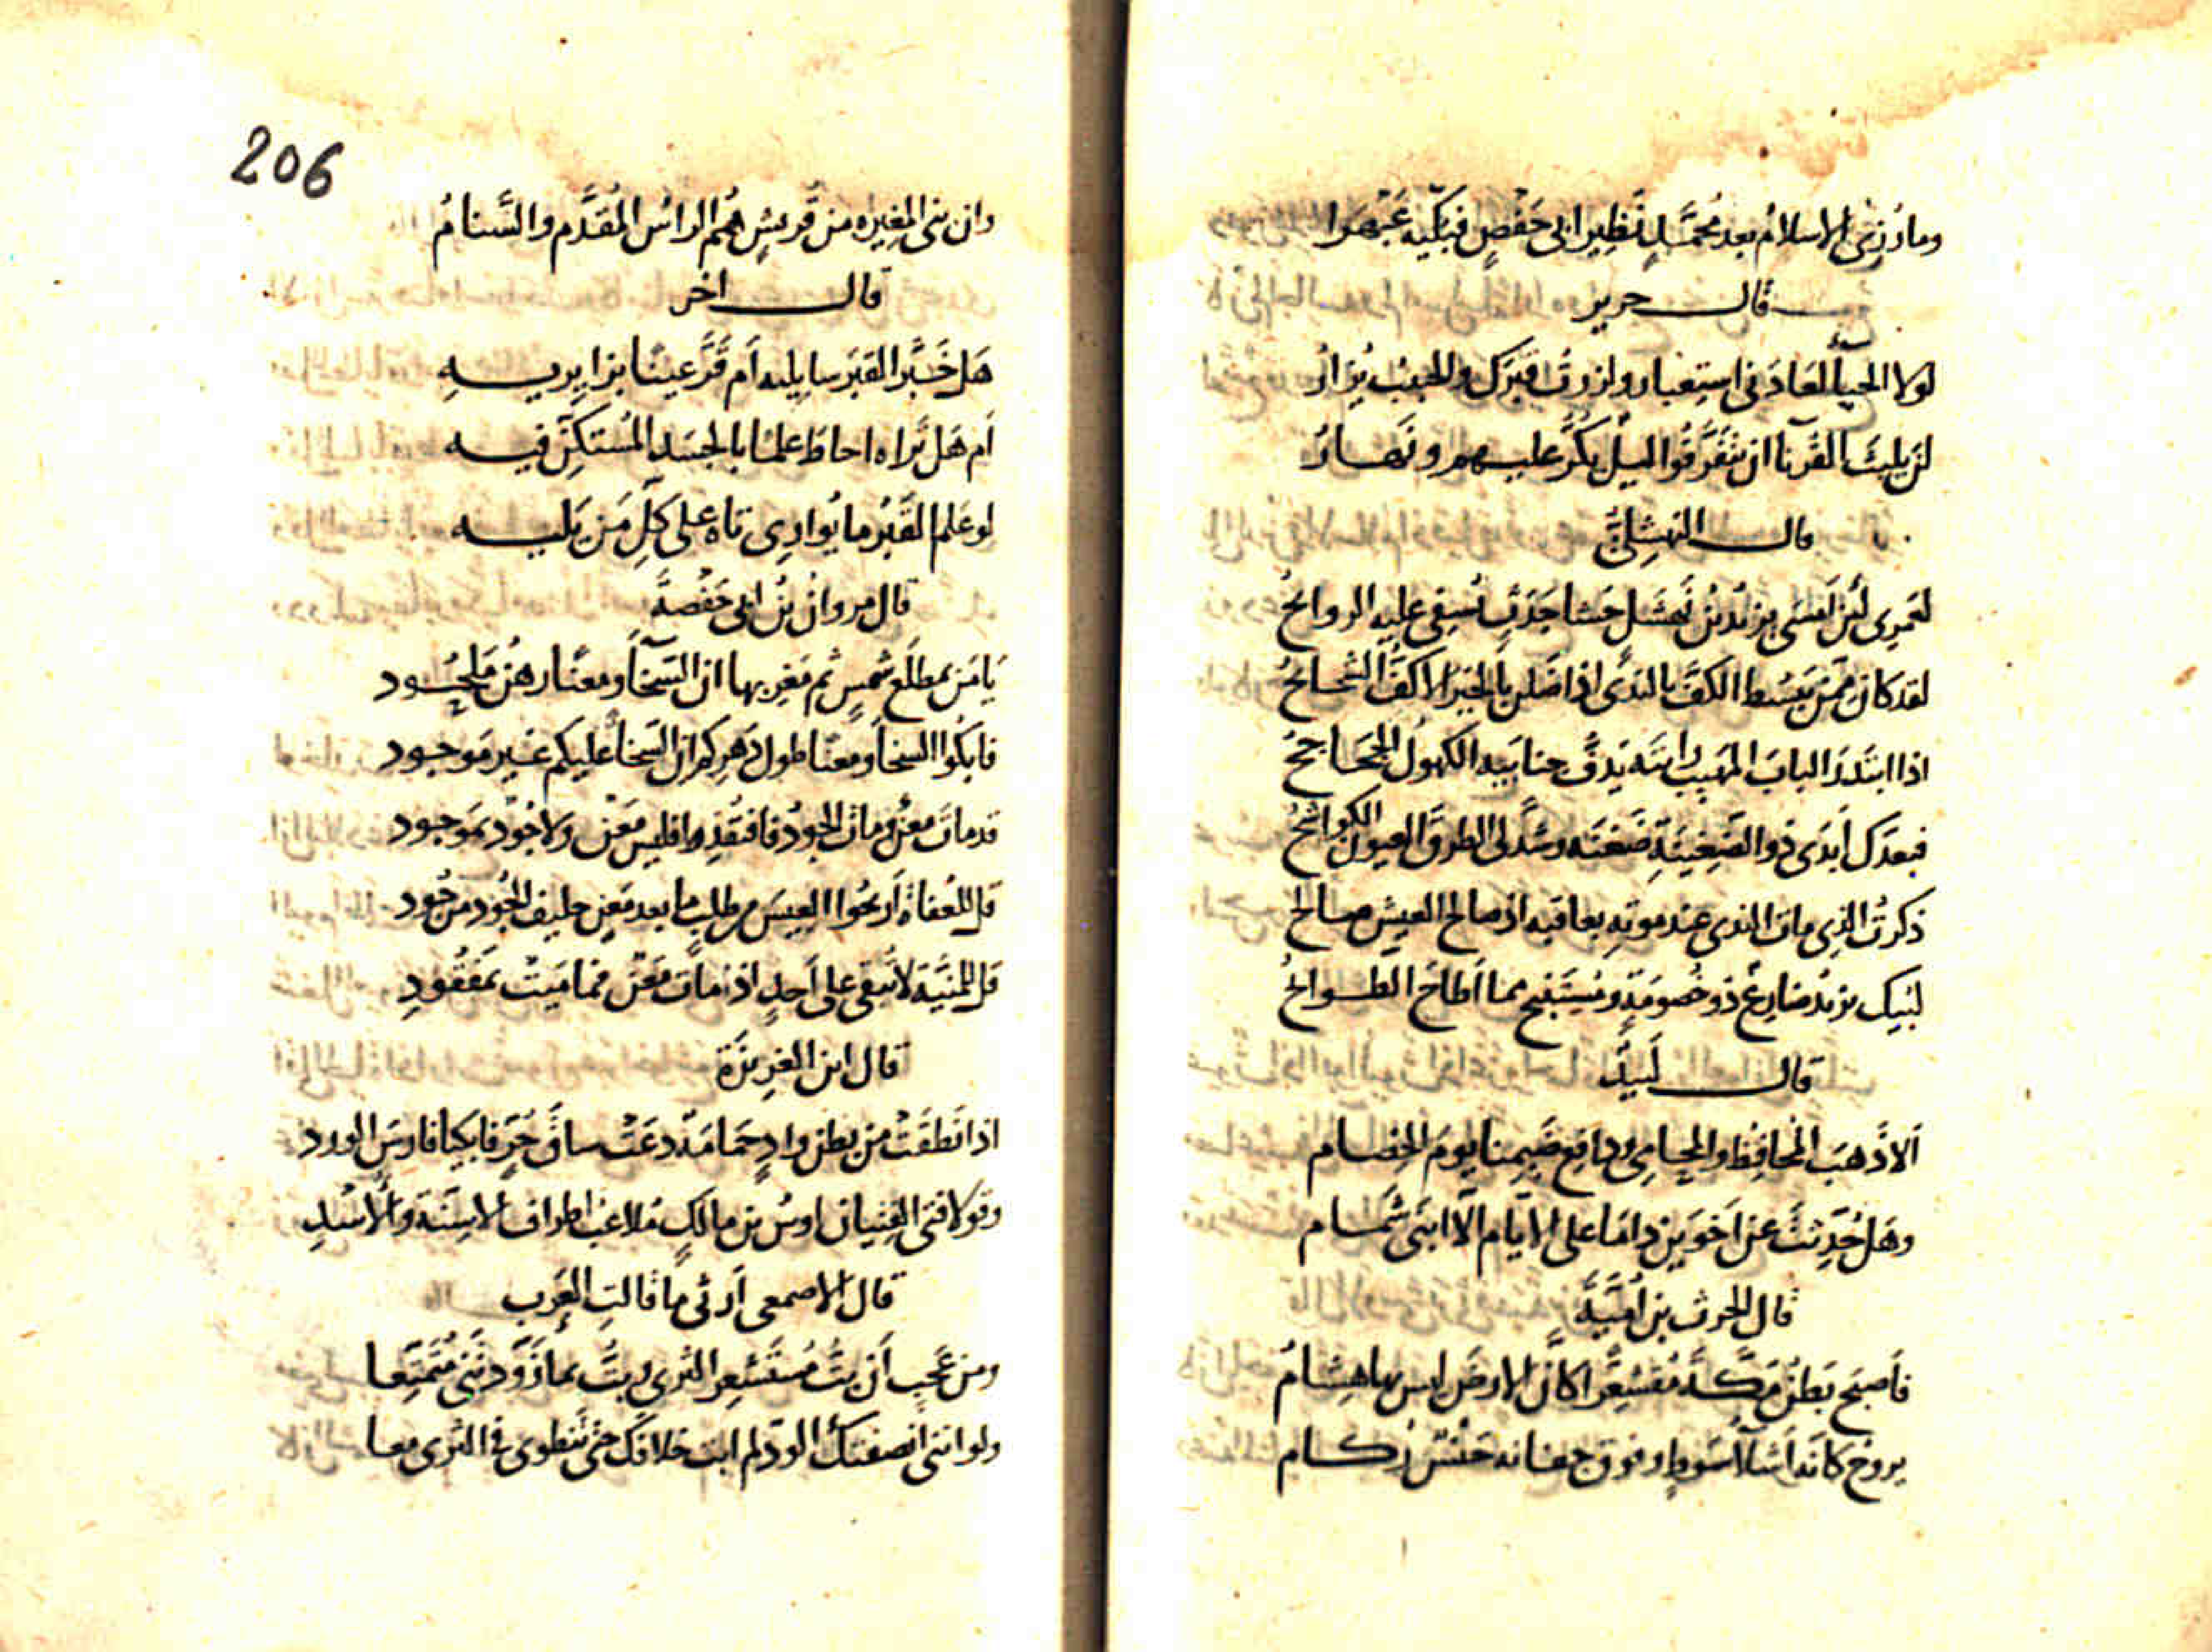 وما رُزِئ الاسلامُ بعد محمَّدٍ نَظِير ابى حَفْصٍ فبكّيه عَبْهرا
قالــــ جرير
لولا الحيآ لعادَنى استِعبار ولزرتُ قبرَكِ والحبيبُ يُزارُ
لن يلبثَ القُرنآ ان يتفَرَّقُوا ليلٌ يكُرُّ عليهم ونَهارُ
قالــــ النهشلىّ
لعَمرِى لئن امسَى يزيدُ بنُ نَهشَلٍ حَشا جَدَثٍ تُسفِى عليه الروائحُ
لقد كان ممَّن يَبسُط الكفَّ بالندَى اذا ضَنَّ بالخير الاكفُّ الشحائحُ
اذا ابتدَرَ البابَ المهيبَ رايتَه يَدقُّ جنابَيه الكهولُ الجحاجحُ
فبعدَك اَبدَى ذو الضَغِينَةِ ضَغْنَه وسَدَّ لى الطرقَ العيونُ الكواشحُ
ذكرتُ الذِى مات الندى عند موتِه بعاقبه اذ صالح العيشِ صالح
لبيك يزيدُ ضارِعٌ ذو خُصومَةٍ ومُستَنبحٌ مما اَطاحَ الطوائحُ
قالــــ لَبيدٌ
اَلا ذَهبَ المُحافِظ والمحامِى ودافِع ضَيمنا يومَ الخِصام
وهل حُدِّثتَ عن اَخَوين داما على الايام الّا ابنَى شَمام
قال الحرث بن اُمَيَّة
فاَصبَح بَطنُ مَكَّة مُقشعِرًّا كانَّ الارضَ ليس بها هِشامُ
يروح كانه اَشلآ سَوطٍ وفوق جفانه شحم رُكام
206
وان بنى المغِيره من قُريشٍ هُم الراسُ المُقدَّم والسَّنامُ
قالــــ اخر
هَل خَبَّر القبَر سايليه اَم قَرَّ عينًا بزايريهِ
اَم هَل تراه احاطَ علمًا بالجسَد المُستَكِنّ فيه
لو عَلم القَبرُ ما يُوارِى تاهَ على كلّ مَن يَليه
قال مروانُ بنُ ابى حَفْصةَ
يَا مَن بمطلَع شَمسٍ ثم مَغرِبها ان السَخآ ومعنًا رهْنُ مَلحُود
فابكُوا السخآ ومعنًا طول دَهركم ان السَخآ عليكم غيرُ مَوجود
قد ماتَ معنٌ ومات الجودُ فافتُقِدا فليس مَعْن ولا جُودٌ بمَوجود
قل للعُفاة اَريحُوا العِيسَ من طلبٍ ما بعد مَعنٍ حليفِ الجُود من جُود
قل للمَنيّة لا تُبقى على اَحدٍ اذ مات مَعْن فما مَيتٌ بمَفقُودِ
قال ابن الغريزَة
اذا نَطقَتْ من بطن وادٍ حَمامَة دعَتْ ساقَ حُرٍّ فابكيا فارسَ الورد
وقولا فتى الفِتيان اوسُ بن مالكٍ مُلاعبُ اطراف الاسِنّة والاُسْدِ
قال الاصمعى اَرثى ما قالتِ العَرب
ومن عَجبٍ اَن بتَّ مُستَشعِر الثرى وبتُّ بما زَوَّدتَنى مُتَمتِّعا
ولو اننى انصفتك الودّ لم ابت خلافَك حتى ننطوى فى الثرى معا